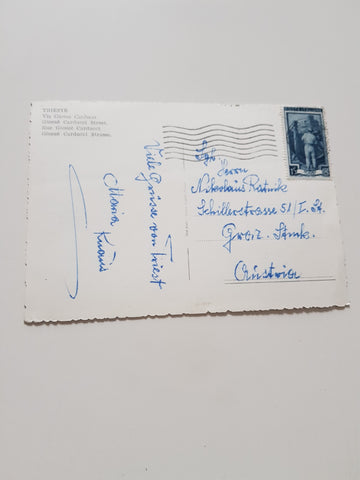 TRIESTE
Via Giosuè Carducci
Giosuè Carducci Street.
Rue Giosuè Carducci
Giosuè Carducci Strasse.
Viele Grüsse von Triest
Maria
Herrn
Nikolaus
Schillerstrasse 51/I. St.
Graz. Stmk.
Austria